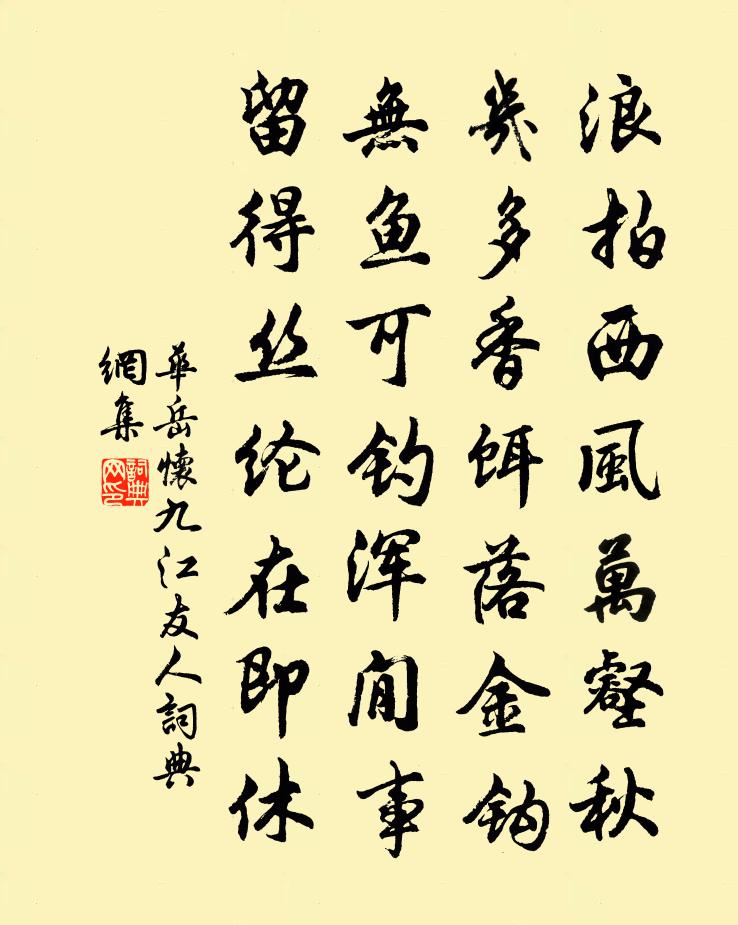 浪拍西風萬壑秋
幾多香餌落金鈎
無鱼可钓浑閒事
留得丝纶在即休
華岳懷九江友人詞典
網集
詞典網印